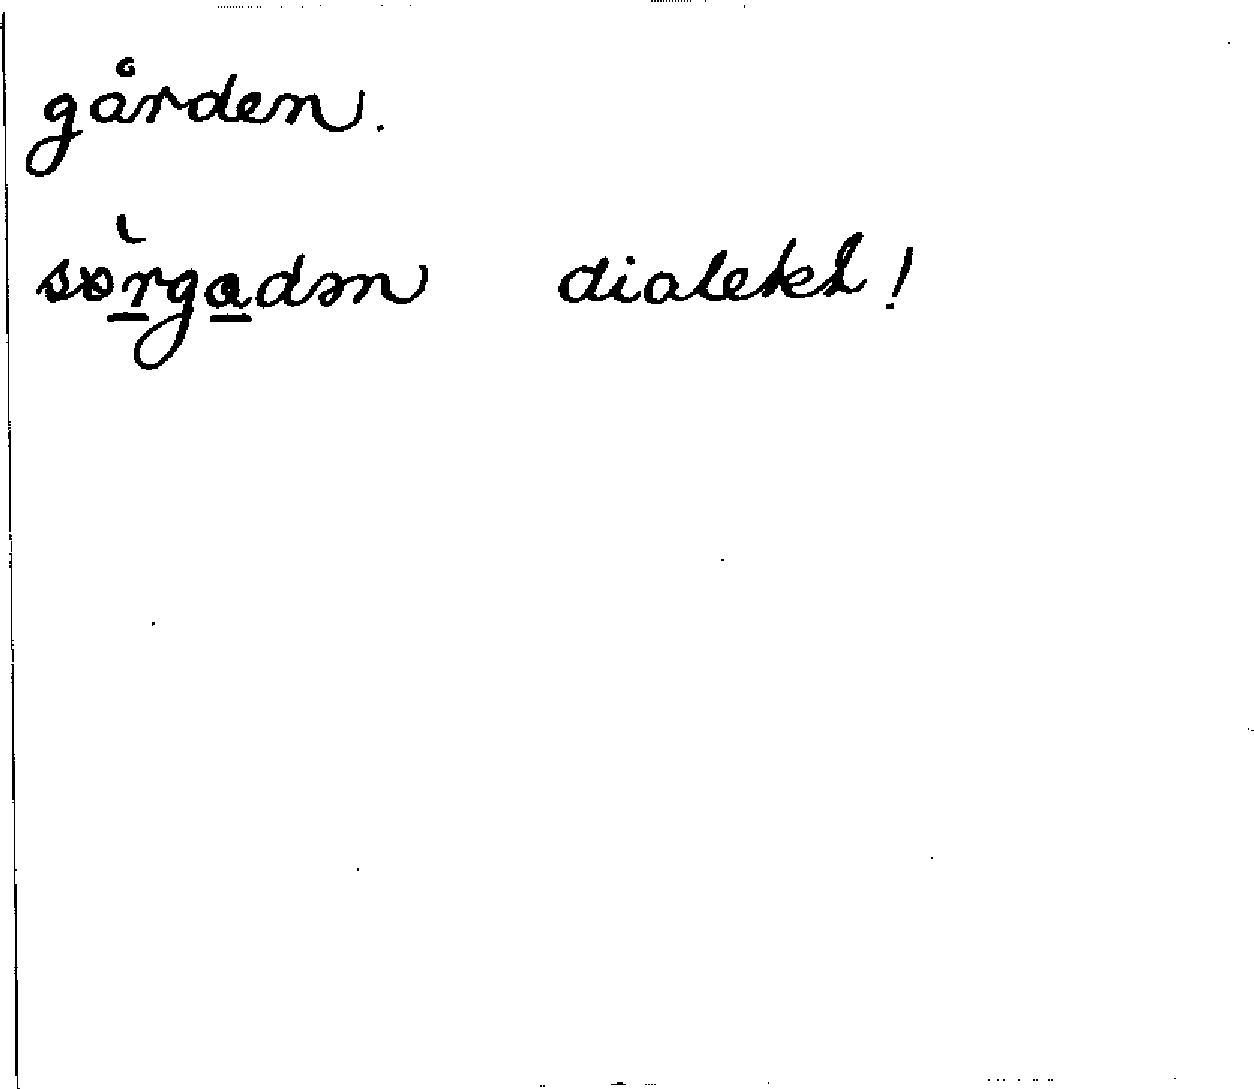 gården.
sörgadən dialekt!